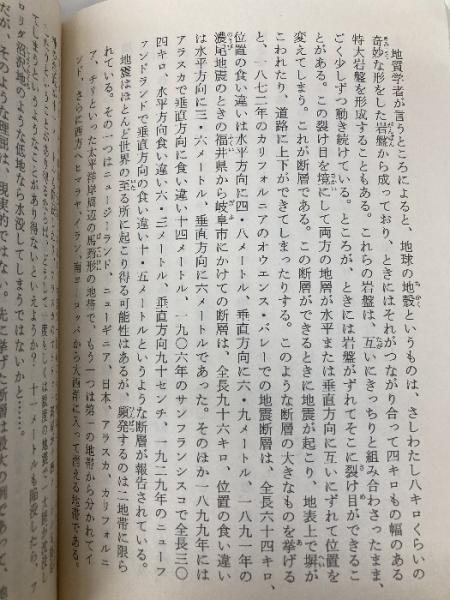 地質学者が言うところによると、地球の地殻というものは、さしわたし八キロくらいの
奇妙な形をした岩盤から成っており、ときにはそれがつながり合って四キロもの幅のある
特大岩盤を形成することもある。これらの岩盤は、互いにきっちりと組み合わさったまま、
ごく少しずつ動き続けている。ところが、ときには岩盤がずれてそこに裂け目ができるこ
とがある。この裂け目を境にして両方の地層が水平または垂直方向に互いにずれて位置を
変えてしまう。これが断層である。この断層ができるときに地震が起こり、地表上で塀が
こわれたり、道路に上下ができてしまったりする。このような断層の大きなものを挙げる
と、一八七二年のカリフォルニアのオウエンス・バレーでの地震断層は、全長六十四キロ、
位置の食い違いは水平方向に四・八メートル、垂直方向に六・九メートル、一八九一年の
濃尾地震のときの福井県から岐阜市にかけての断層は、全長九十六キロ、位置の食い違い
は水平方向に三・六メートル、垂直方向に六メートルであった。そのほか一八九九年には
アラスカで垂直方向に食い違い十四メートル、一九〇六年のサンフランシスコで全長三〇
四キロ、水平方向食い違い六・三メートル、垂直方向九十センチ、一九二九年のニューフ
ァンドランドで垂直方向の食い違い十・五メートルというような断層が報告されている。
地震はほとんど世界の至る所に起こり得る可能性はあるが、頻発するのは二地帯に限ら
れている。その一つはニュージーランド、ニューギニア、日本、アラスカ、カリフォルニ
ア、チリといった太平洋岸周辺の馬蹄形の地帯で、もう一つは第一の地帯から分かれてイ
ンド、さらに西方へヒマラヤ、イラン、南ヨーロッパから大西洋に入って消える地帯である。
てしまうというようなことがあり得ないといえようか？ 十一メートルも陥没したら、フ
ロリダ沼沢地のような低地なら水没してしまうではないかと……。
だが、そのような理屈は、現実的ではない。先に挙げた断層は最大の例であって、地